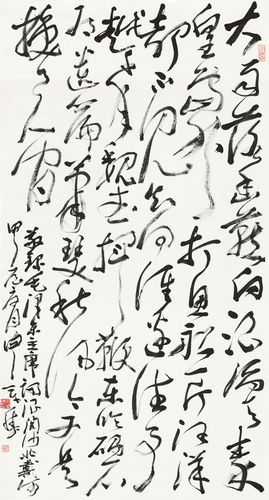 大雨落幽燕白浪滔天秦
皇岛外打鱼船一片汪洋
都不见知向谁边往事
越千年魏武挥鞭东临碣石
有遗篇萧瑟秋风今又是
换了人间
敬录毛泽东主席词浪淘沙北戴河
甲午